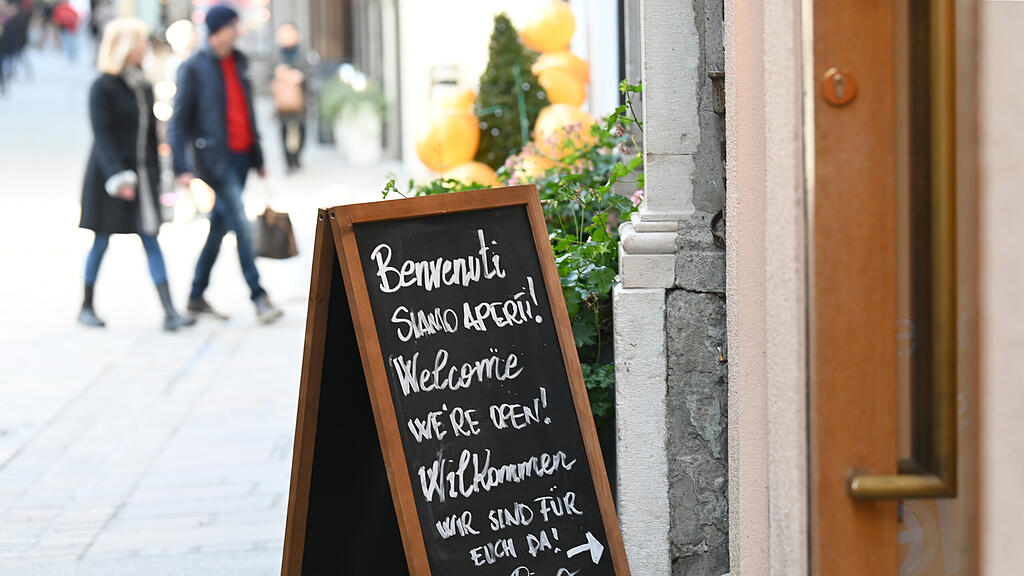 Benvenuti
SIAMO APERTI!
Welcome
WE'RE OPEN!
Willkommen
WIR SIND FÜR
EUCH DA!